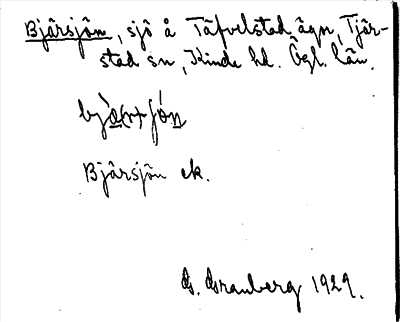 Bjärsjön, sjö å Täfvelstad ägn, Tjär-
stad sn, Kinda hd. Ögl. län.
Bjärsjön ek.
G. Granberg 1929.